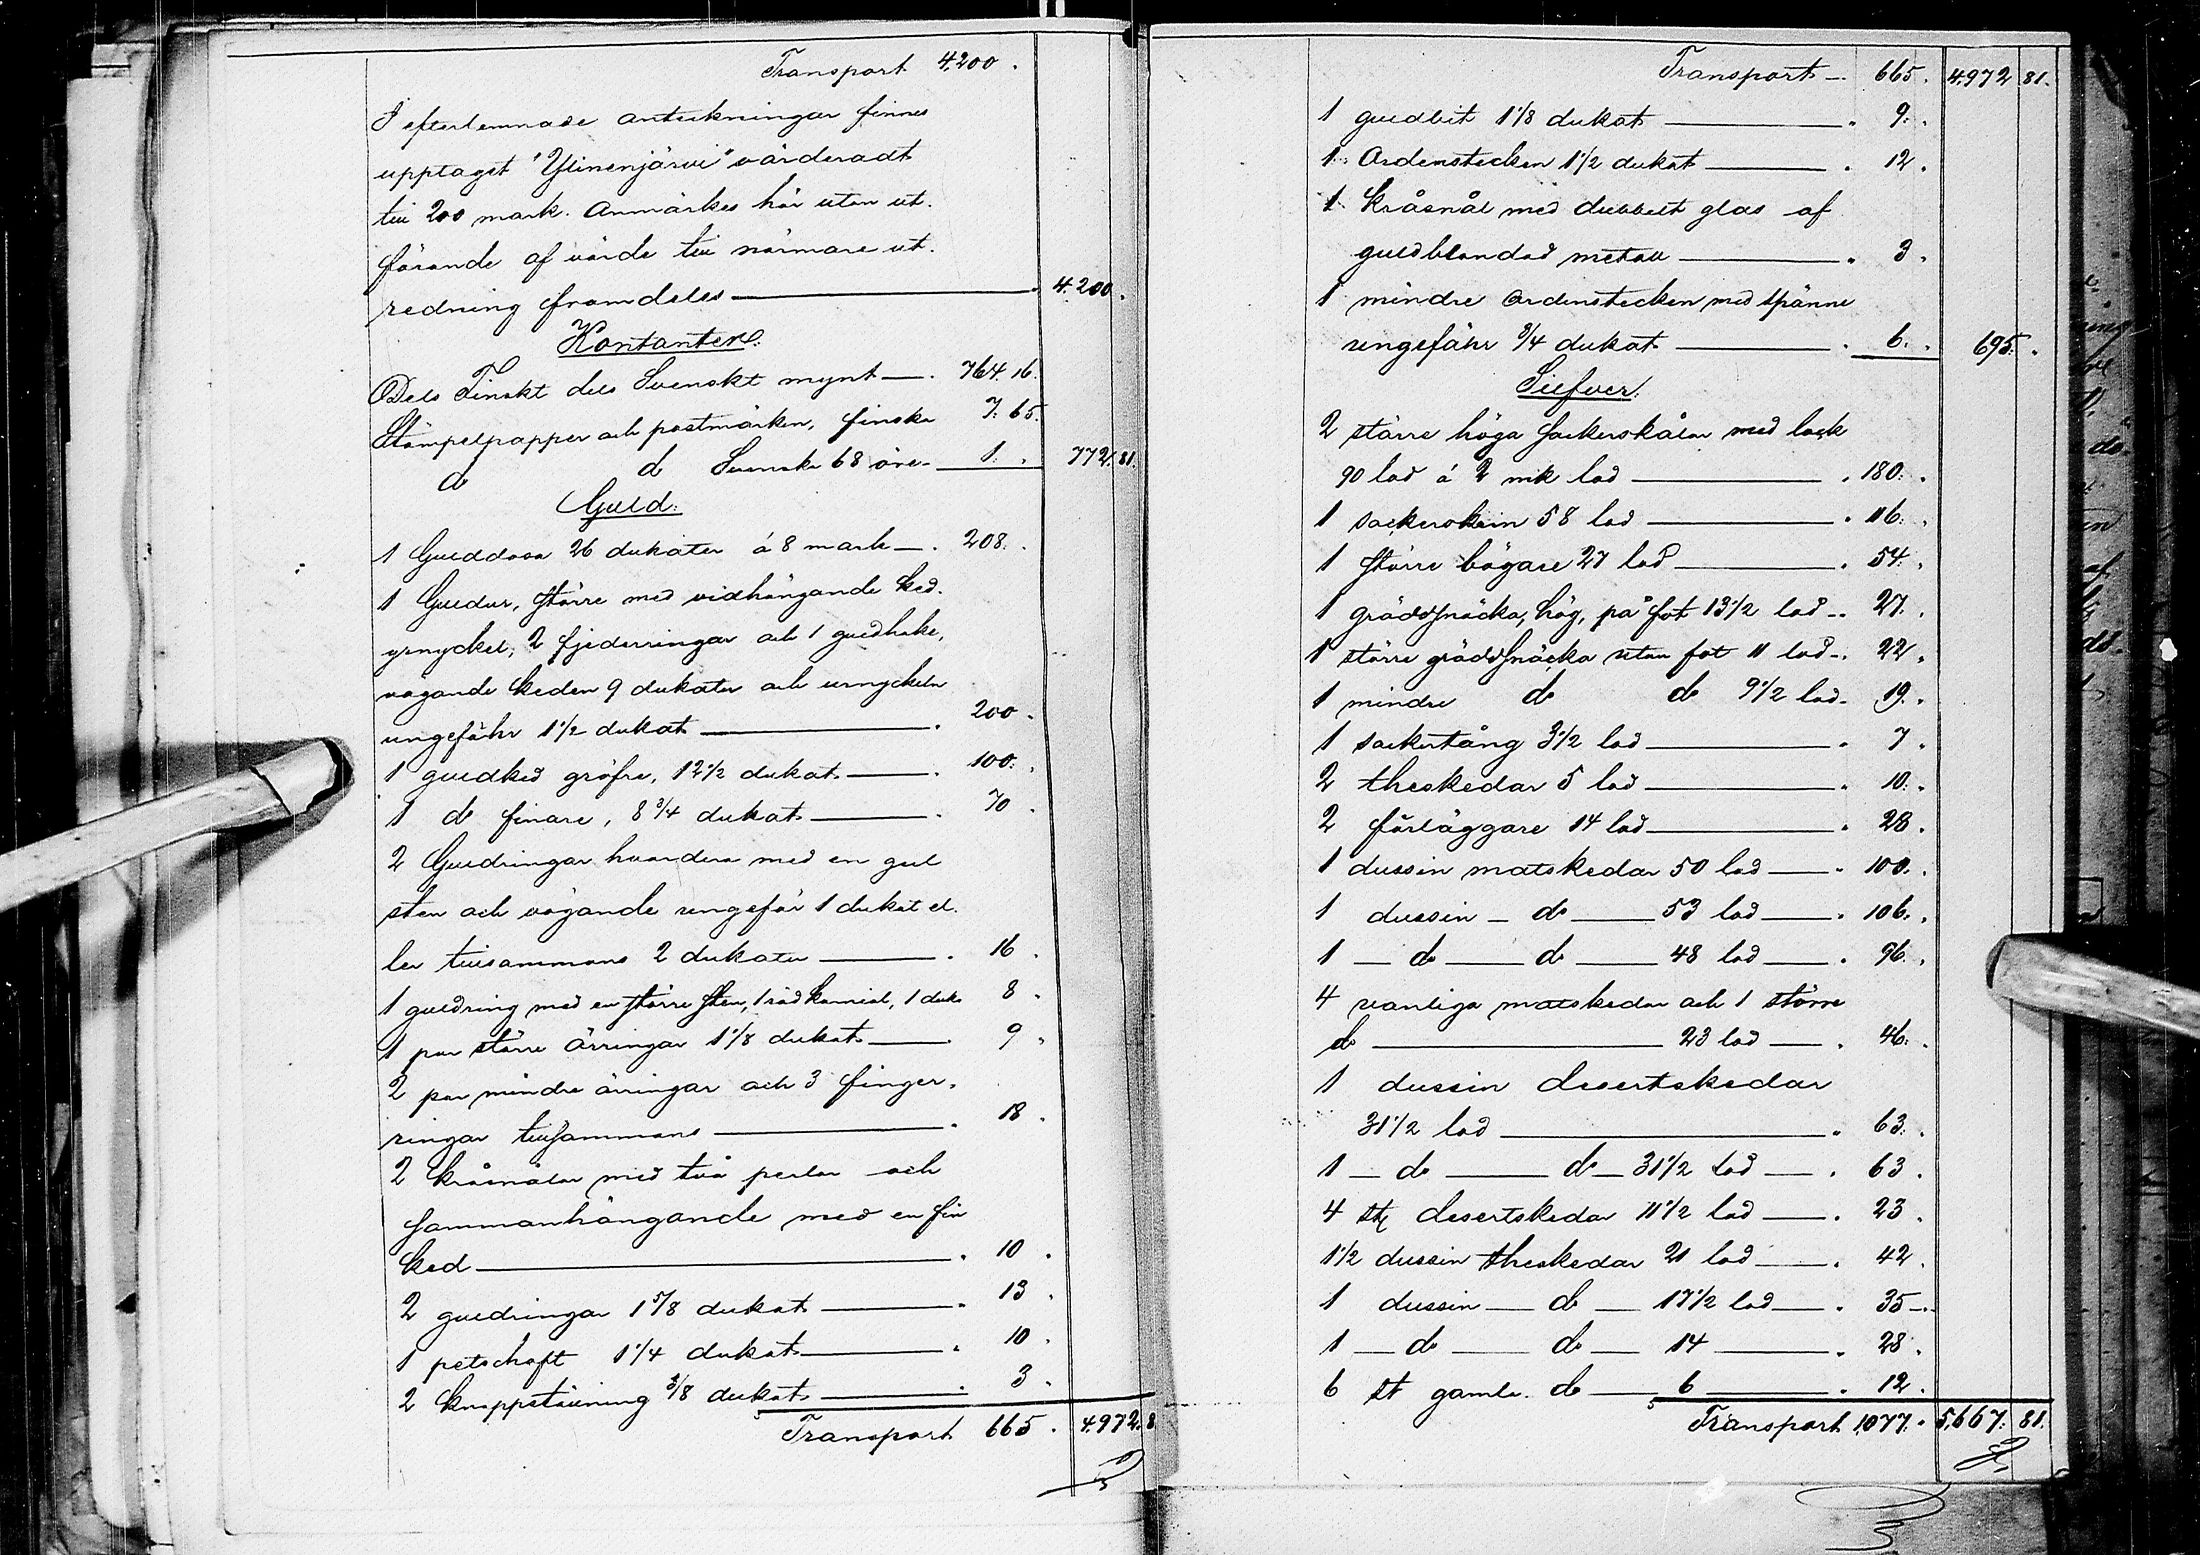 Transport 4,200.
I efterlemnade anteckningar finnes
upptaget "Ylinenjärvi" värderadt
till 200 mark. Anmärkes här utan ut-
förande af värde till närmare ut-
redning framdeles — 4,200.
Kontanter.
Dels Finskt dels Svenskt mynt — 764.16.
Stämpelpapper och postmärken, finska 7.65.
d d Svenska 68 öre — 1. 772.81.
Guld.
1 Gulddosa 26 dukater á 8 mark — 208.
1 Guldur, större med vidhängande ked.
urnyckel, 2 fjederringar och 1 guldhake,
vägande keden 9 dukater och urnyckeln
ungefähr 1 1/2 dukat — 200.
1 guldked gröfre, 12 1/2 dukat — 100.
1 do finare, 8 3/4 dukat — 70.
2 Guldringar hvardera med en gul
sten och vägande ungefär 1 dukat el-
ler tillsammans 2 dukater — 16.
1 guldring med en större sten, 1 röd karniol, 1 duk. 8.
1 par större örringar 1 1/8 dukat — 9.
2 par mindre örringar och 3 finger-
ringar tillsammans — 18.
2 kråsnålar med två perlor och
sammanhängande med en fin
ked — 10.
2 guldringar 1 5/8 dukat — 13.
1 petschaft 1 1/4 dukat — 10.
2 knappstäuning 3/8 dukat — 3.
Transport 665. 4,972.8
Transport — 665. 4,972 81.
1 guldbit 1 1/8 dukat — 9.
1 Ordenstecken 1 1/2 dukat — 12.
1 Kråsnål med dubbelt glas af
guldblandad metall — 3.
1 mindre ordenstecken med spänne
ungefähr 3/4 dukat — 6. 695.
Silfver.
2 större höga sockerskålar med lock
90 lod á 2 mk lod — 180.
1 sockerskrin 58 lod — 116.
1 större bägare 27 lod — 54.
1 gräddsnäcka, hög, på fot 13 1/2 lod — 27.
1 större gräddsnäcka utan fot 11 lod — 22.
1 mindre do do 9 1/2 lod — 19.
1 sockertång 3 1/2 lod — 7.
2 theskedar 5 lod — 10.
2 förläggare 14 lod — 28.
1 dussin matskedar 50 lod — 100.
1 dussin — do — 53 lod — 106.
1 — do — do — 48 lod — 96.
4 vanliga matskedar och 1 större
do — 23 lod — 46.
1 dussin desertskedar
31 1/2 lod — 63.
1 — do — do — 31 1/2 lod — 63.
4 st desertskedar 11 1/2 lod — 23.
1 1/2 dussin theskedar 21 lod — 42.
1 dussin — do — 17 1/2 lod — 35.
1 — do — do — 14 — 28.
6 st gamla do — 6 — 12.
Transport 1,077. 5,667. 81.